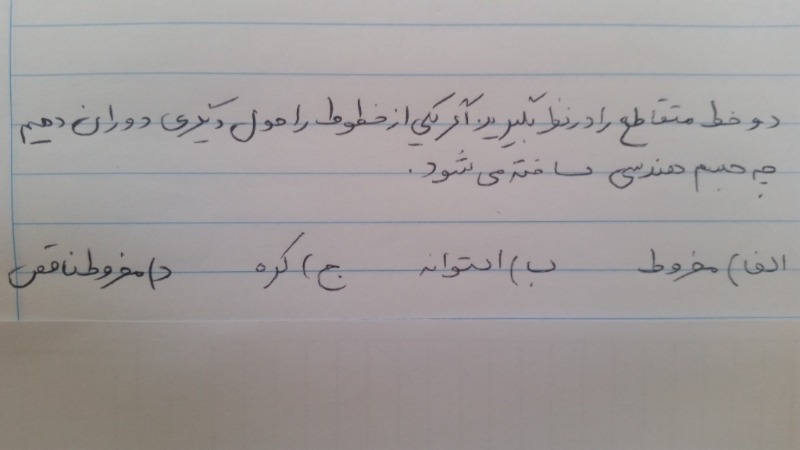 دو خط متقاطع را در نظر بگیرید. اگر یکی از خطوط را حول دیگری دوران دهیم
چه حجم هندسی ساخته می شود.
الف) مخروط ب) استوانه ج) کره د) مخروط ناقص